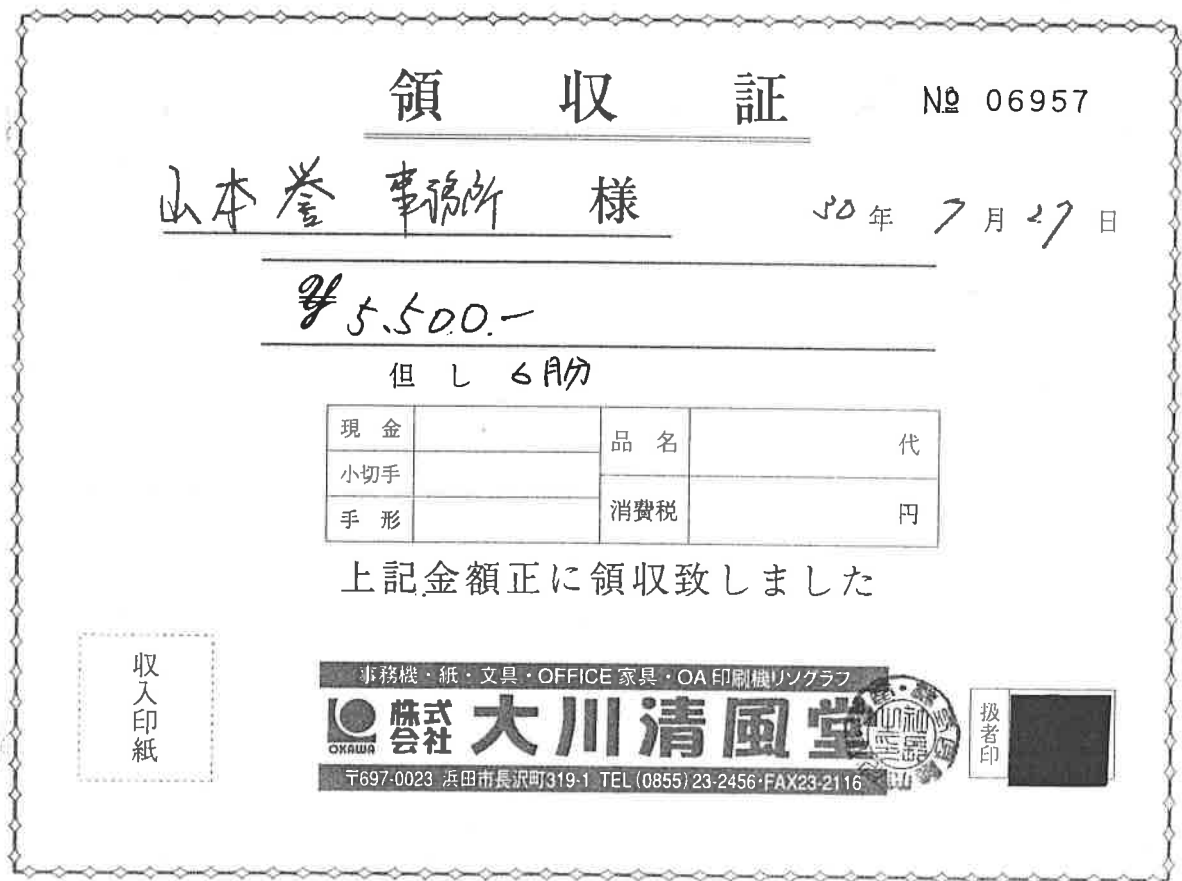 領収証 № 06957
山本誉 事務所 様 30年 7月27日
¥5,500.-
但し 6月分
現金 品名 代
小切手
消費税 円
手形
上記金額正に領収致しました
収入印紙
事務機・紙・文具・OFFICE家具・OA印刷機リソグラフ
OKAWA 株式会社 大川清風堂
〒697-0023 浜田市長沢町319-1 TEL(0855)23-2456・FAX23-2116
扱者印